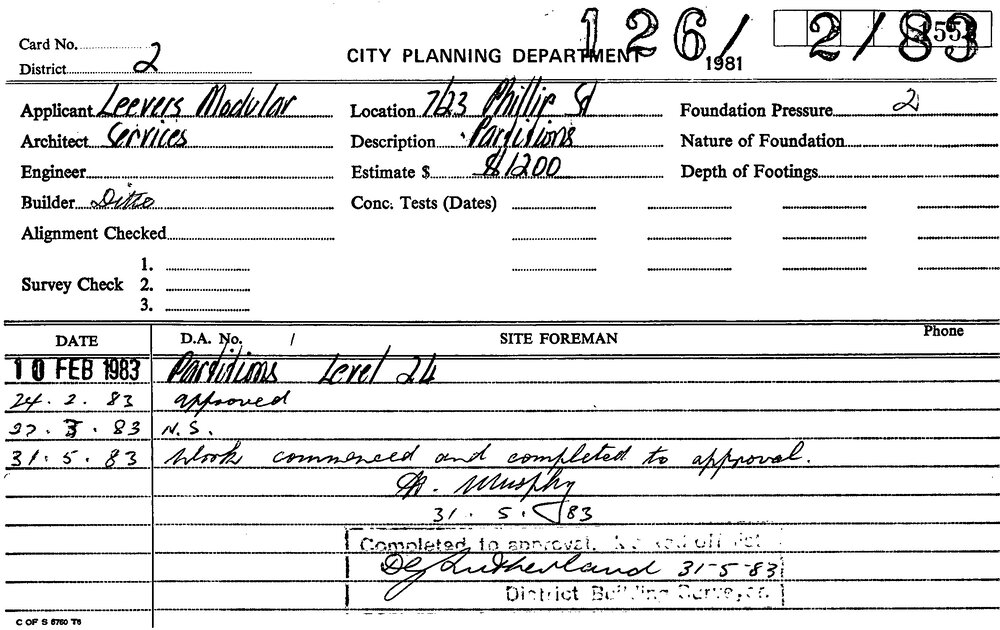 126/ 2/83
Card No.
District 2
CITY PLANNING DEPARTMENT
1981
Applicant Leevers Modular
Location 7/23 Phillip St
Foundation Pressure 2
Architect Services
Description Partitions
Nature of Foundation
Engineer
Estimate $ $1200
Depth of Footings
Builder Ditto
Conc. Tests (Dates)
Alignment Checked
Survey Check
1.
2.
3.
DATE D.A. No. / SITE FOREMAN Phone
10 FEB 1983 Partitions Level 24
24. 2. 83 approved
3. 83 N.S.
31. 5. 83 Work commenced and completed to approval.
Murphy
31. 5. 83
Completed to approval. off list
Sutherland 31-5-83
District Building Surveyor.
C OF S 6760 T6